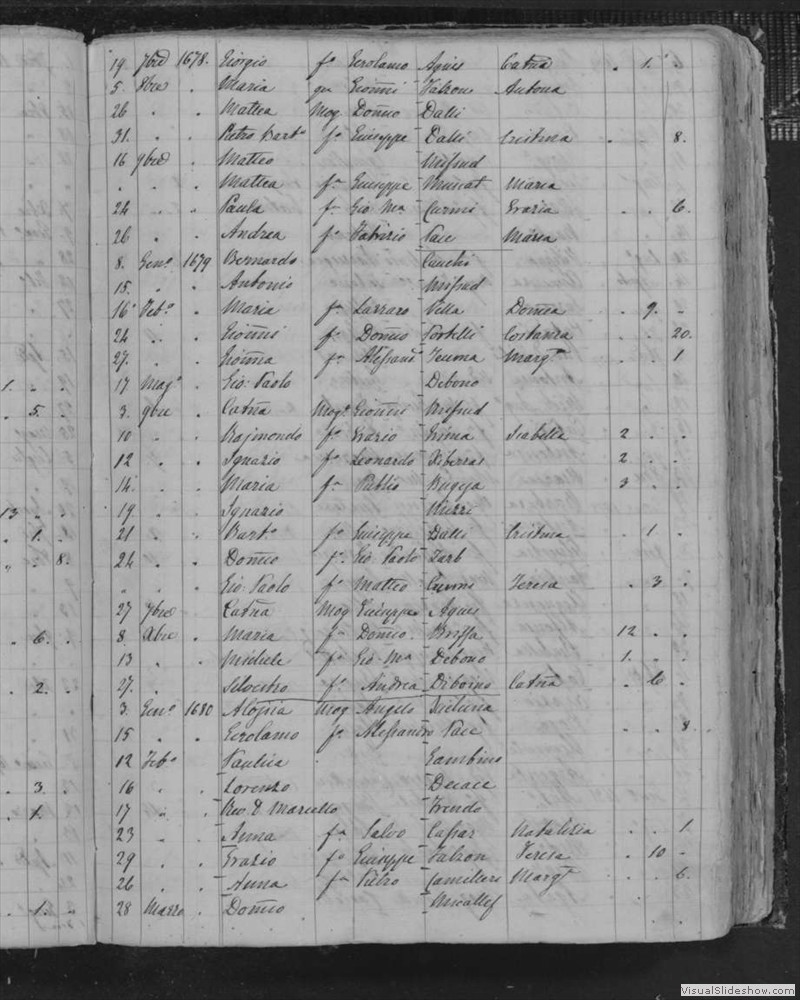 19 7bre 1678. Giorgio fo Gerolamo Agius Catna . 1. .
5. 8bre . Maria qu Gioñni Falzon Antona
26 . . Mattea Mog Doñico Dalli
31. . . Pietro Barto fo Giuseppe Dalli Cristina . . 8.
16 9bre . Matteo Mifsud
. . . Mattea fa Giuseppe Muscat Maria
24 . . Paula fa Gio Ma Curmi Grazia . . 6.
26 . . Andrea fo Fabrizio Pace Maria
8. Geno 1679 Bernardo Cauchi
15. . . Antonio Mifsud
16 Febo . Maria fa Lazzaro Vella Doñica . 9. .
24 . . Gioñni fo Doñico Portelli Costanza . . 20.
27. . . Gioñna fa Alessand Teuma Margta . . 1
17 Mago . Gio: Paolo Debono
1. . .
3. 9bre . Catna Moge Gioñni Mifsud
. 5. .
10 . . Rajmondo fo Grazio Grima Isabella 2 . .
12 . . Ignazio fo Leonardo Xiberras 2 . .
14. . . Maria fa Publio Bugeja 3 . .
19 . . Ignazio
13 . .
21 . . Barto fo Giuseppe Dalli Cristina . 1 .
. 1. .
24 . . Doñico fo Gio Paolo Zarb
. . 8.
. . . Gio: Paolo fo Matteo Curmi Teresa . 3 .
27 7bre . Catna Mog Giuseppe Agius
8. Xbre . Maria fa Doñico. Briffa 12 . .
. 6. .
13 . . Michele fo Gio Ma Debono 1. . .
27. . . Silvestro fo Andrea Dibono Catna . 6 .
. 2. .
3. Geno 1680 Alojsia Mog Angelo
15 . . Gerolamo fo Alessandro Pace . . 8.
12 Febo . Gambino
16 . . Lorenzo
. 3. .
17 . . Rev D Marcello Frendo
. 1. .
23 . . Anna fa Salvo Caspar Natalizia . . 1.
29 . . Grazio fo Giuseppe Falzon Teresa . 10 .
26 . . Anna fa Pietro Camilleri Margta . . 6.
28 Marzo . Doñico Micallef
. 1. .
VisualSlideshow.com